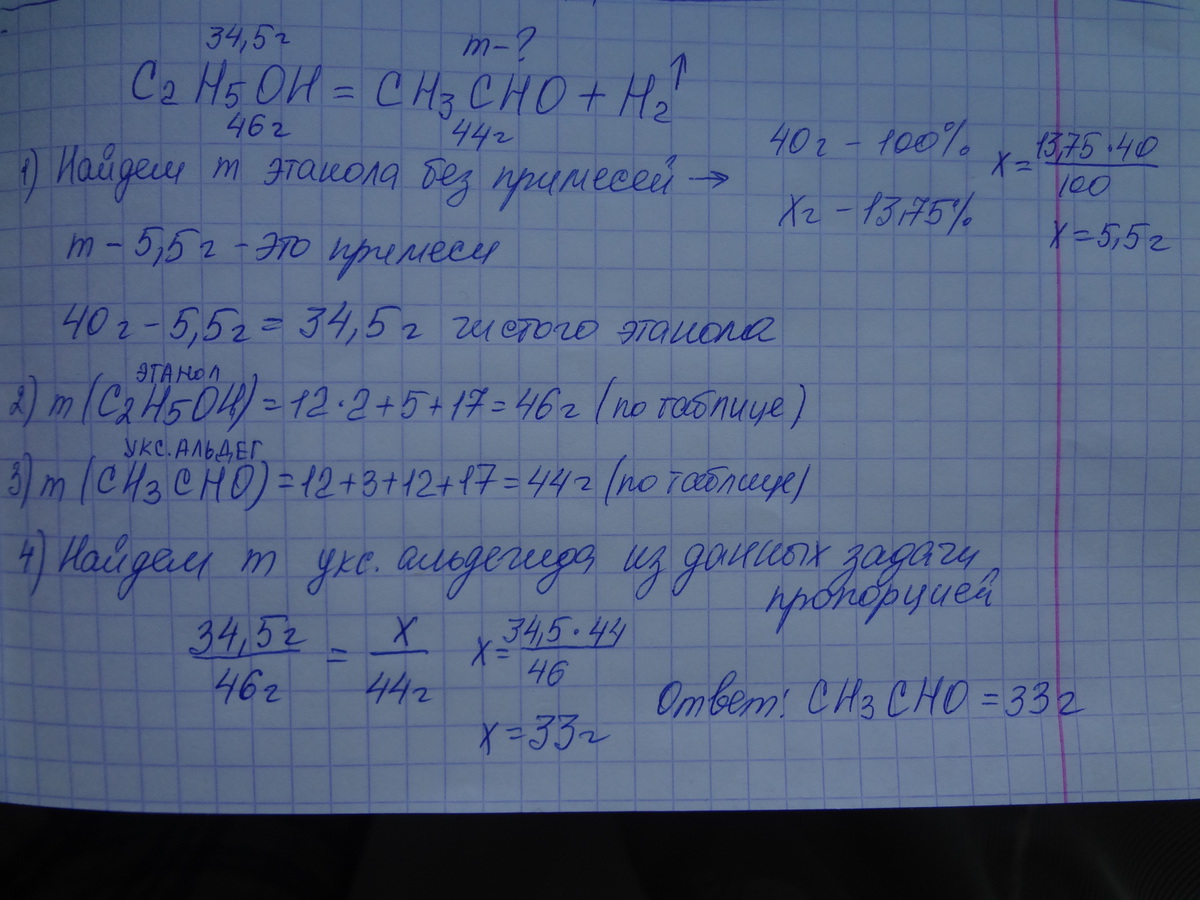 34,5г m-?
C₂H₅OH = CH₃CHO + H₂↑
46г 44г
1) Найдем m этанола без примесей →
40г - 100%
Xг - 13,75%
X = 13,75·40 / 100
X = 5,5г
m - 5,5г - это примеси
40г - 5,5г = 34,5г чистого этанола
ЭТАНОЛ
2) m (C₂H₅OH) = 12·2+5+17 = 46г (по таблице)
УКС. АЛЬДЕГ
3) m (CH₃CHO) = 12+3+12+17 = 44г (по таблице)
4) Найдем m укс. альдегида из данных задачи
пропорцией
34,5г / 46г = X / 44г
X = 34,5·44 / 46
X = 33г
Ответ: CH₃CHO = 33г